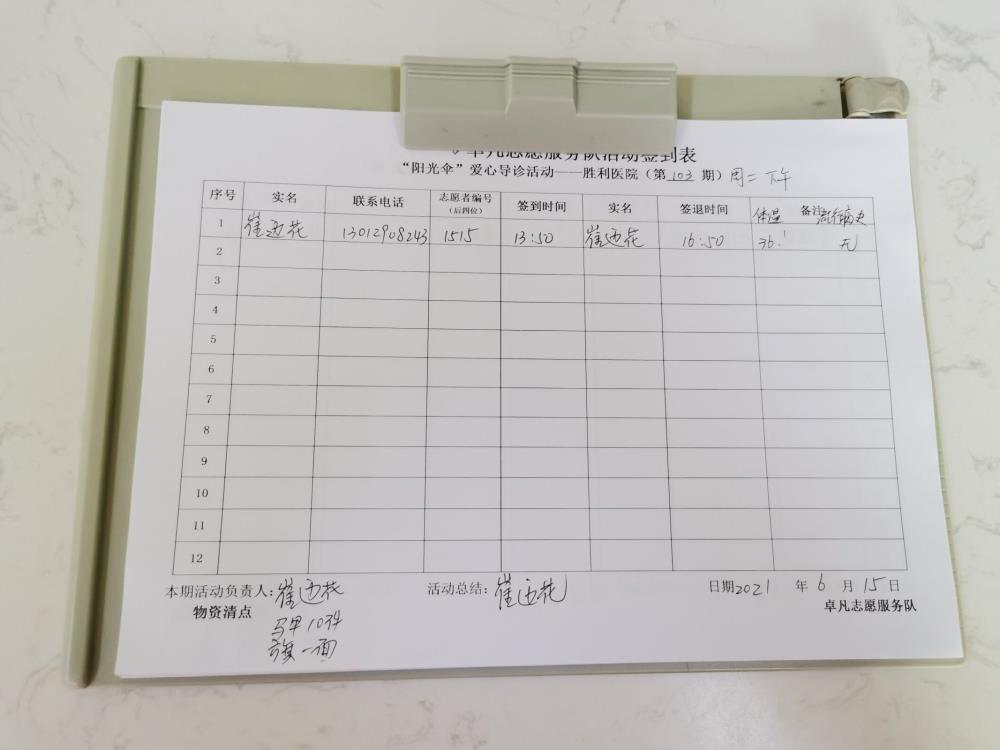 卓凡志愿服务队活动签到表
“阳光伞”爱心导诊活动——胜利医院(第 103 期)周二 下午
序号 实名 联系电话 志愿者编号(后四位) 签到时间 实名 签退时间 体温 备注 流行病史
1 崔迺花 13012908243 1515 13:50 崔迺花 16:50 36.1 无
2
3
4
5
6
7
8
9
10
11
12
本期活动负责人:崔迺花 活动总结:崔迺花 日期2021 年 6 月 15 日
物资清点 卓凡志愿服务队
马甲10件
旗一面